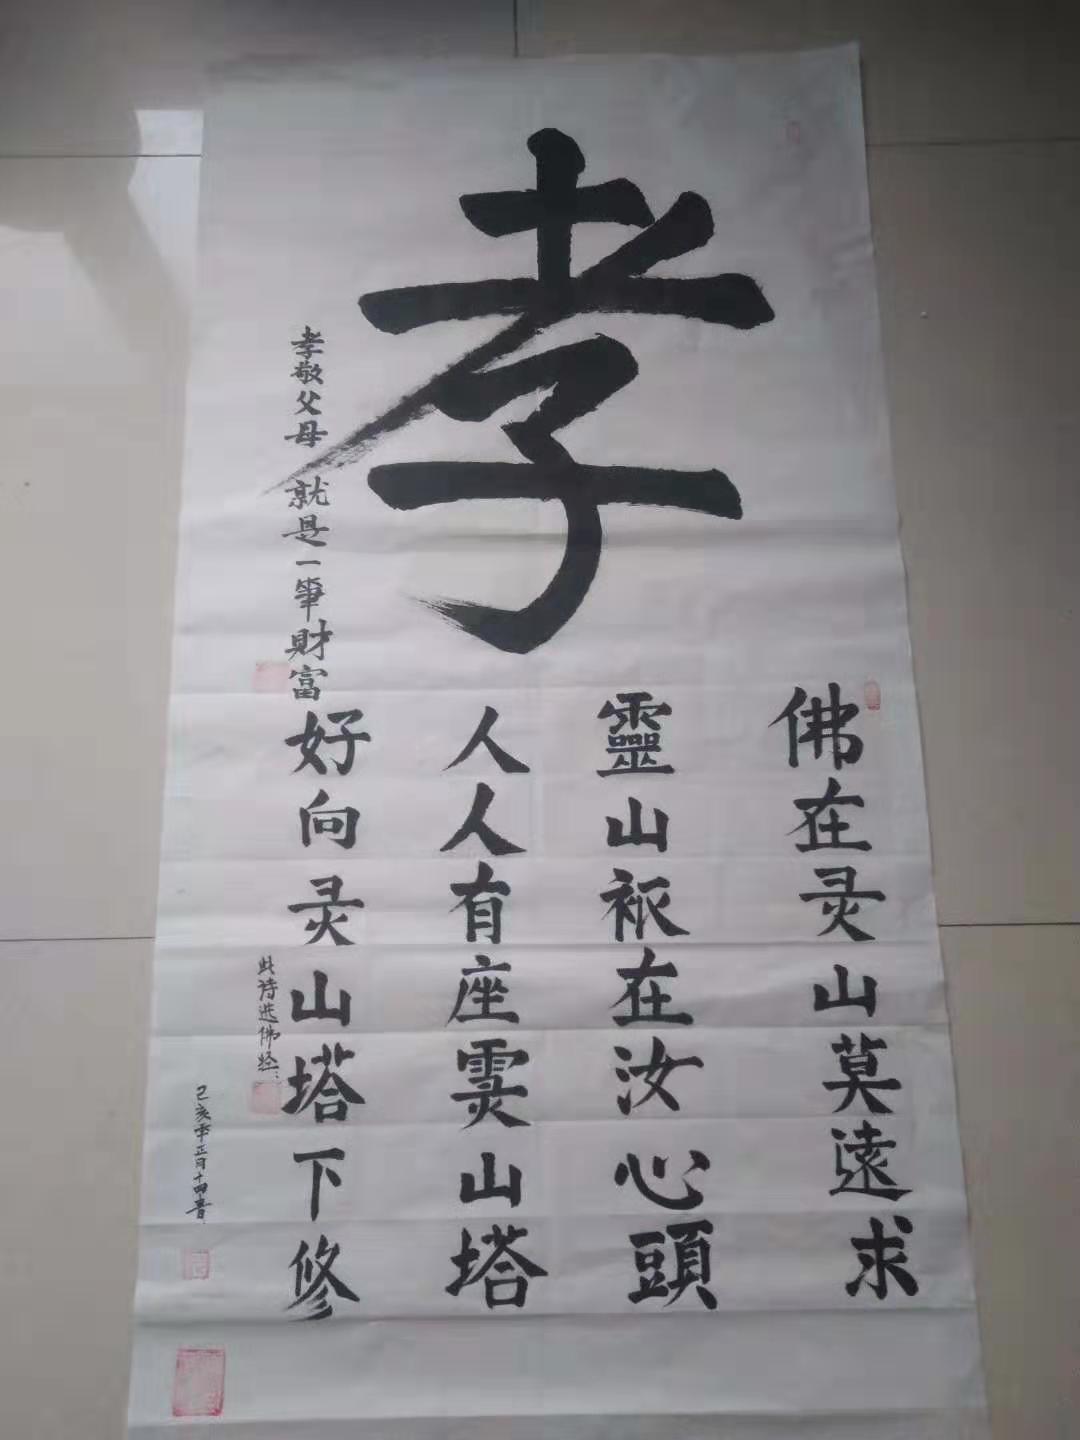 孝
佛在灵山莫遠求
靈山祇在汝心頭
人人有座霛山塔
好向灵山塔下修
孝敬父母 就是一筆財富
此诗选佛经:
己亥年正月十四書